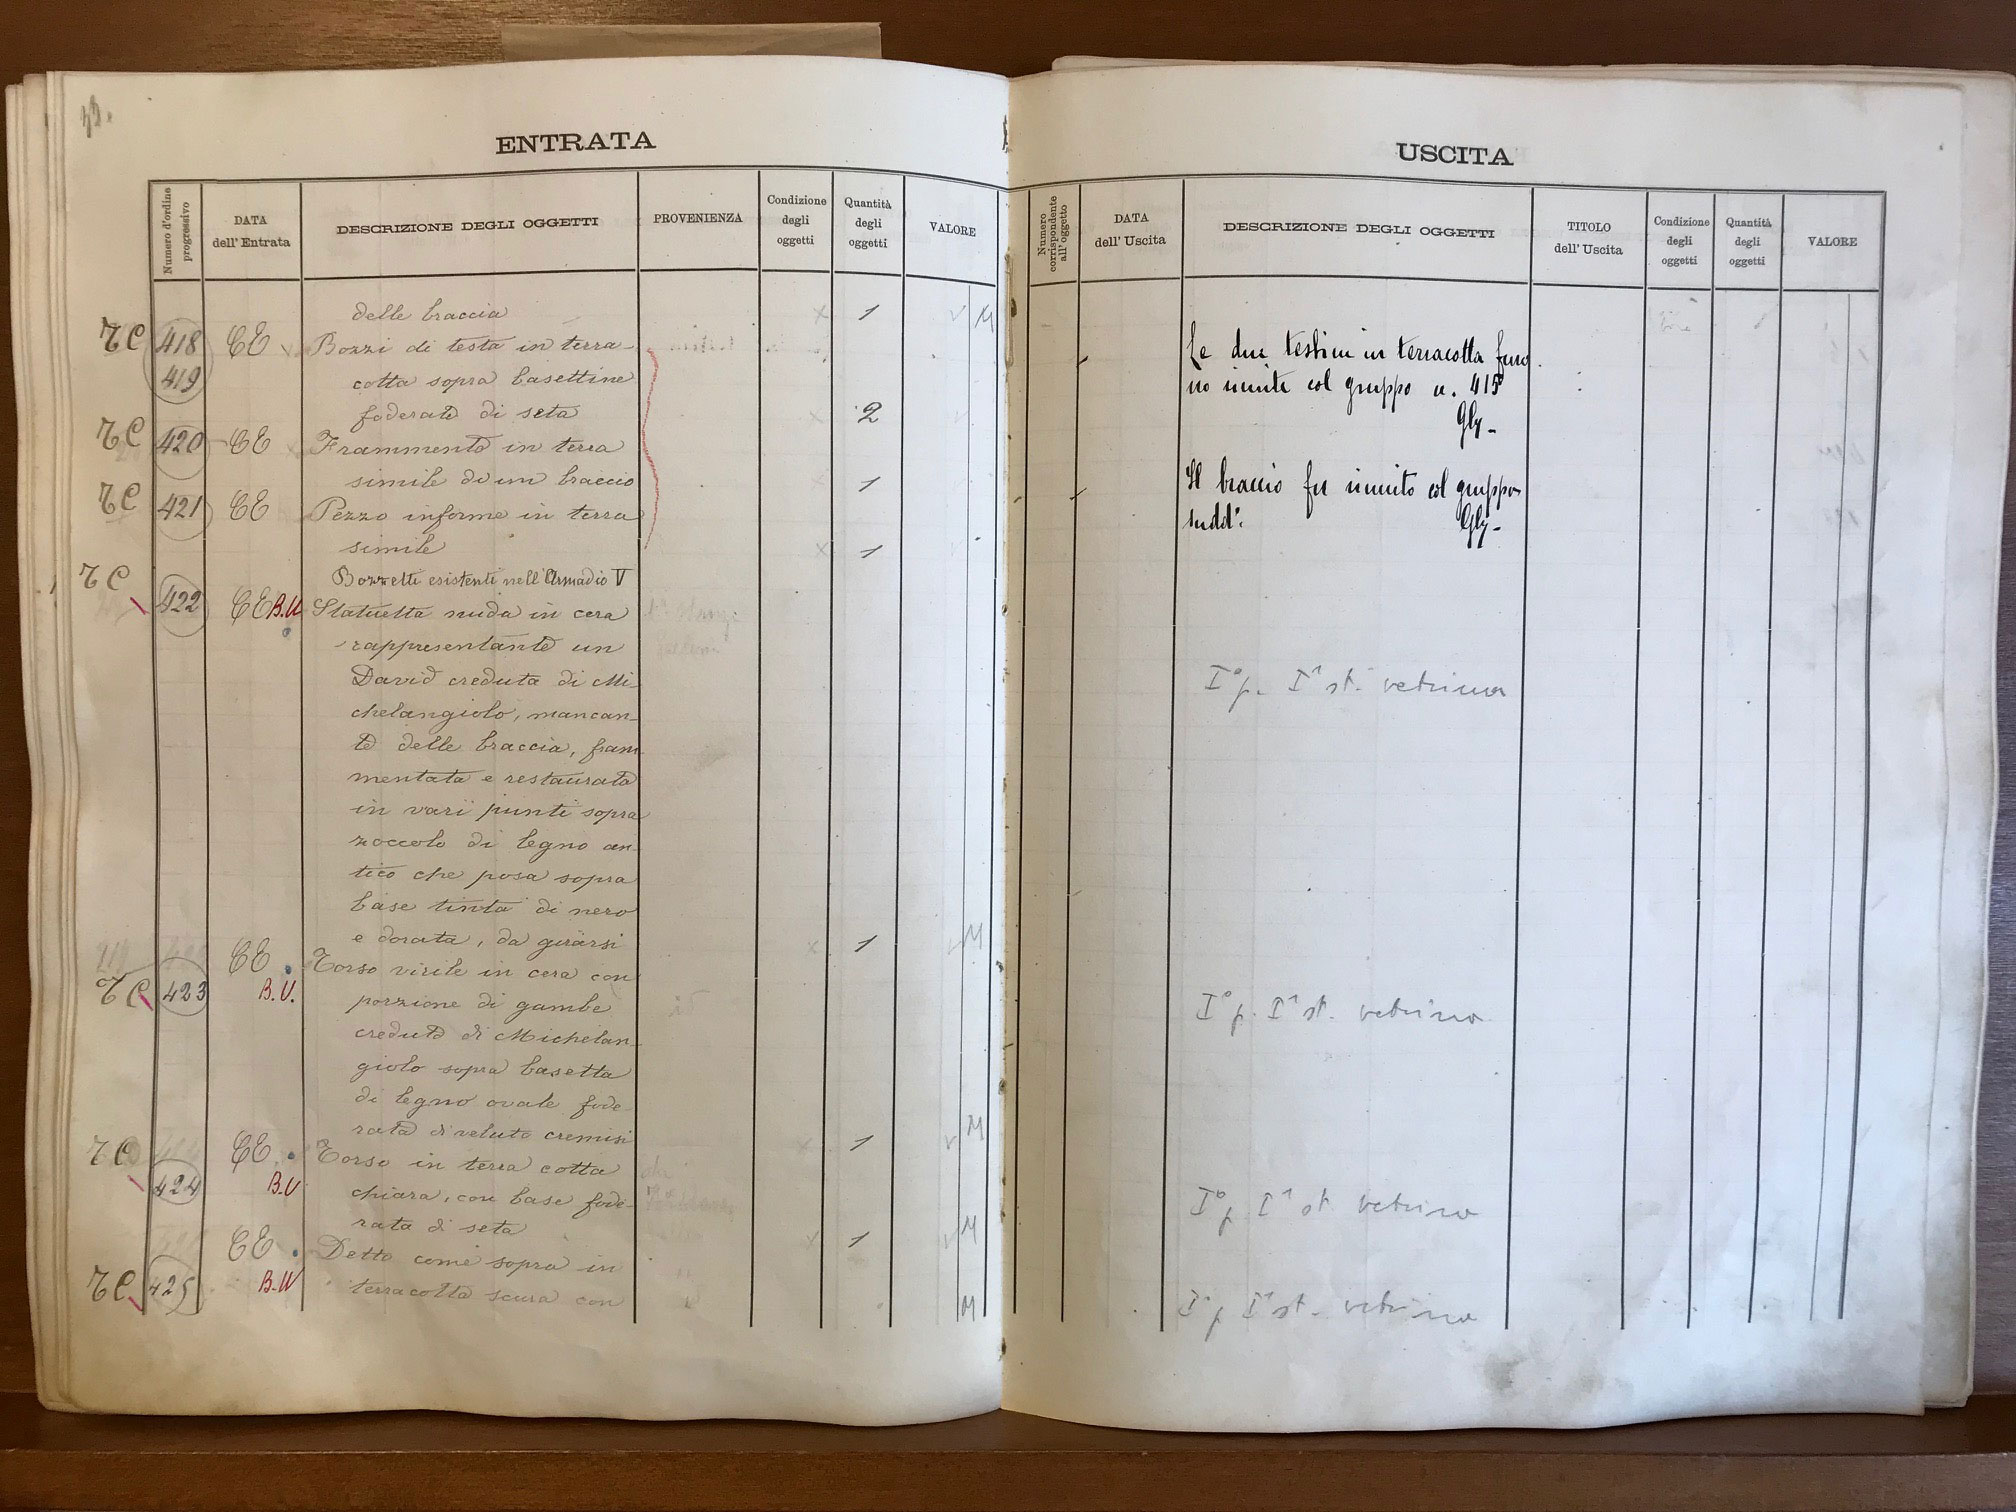 ENTRATA
Numero d'ordine progressivo
DATA dell'Entrata
DESCRIZIONE DEGLI OGGETTI
PROVENIENZA
Condizione degli oggetti
Quantità degli oggetti
VALORE
delle braccia 1 M
TC 418 CE Bozzi di testa in terra-
419 cotta sopra basettine
foderate di seta 2
TC 420 CE Frammento in terra
simile di un braccio 1
TC 421 CE Pezzo informe in terra
simile 1
TC Bozzetti esistenti nell'Armadio V
422 CE B.U Statuetta nuda in cera
rappresentante un
David creduta di Mi-
chelangiolo, mancan-
te delle braccia, fram
mentata e restaurata
in varii punti sopra
zoccolo di legno an-
tico che posa sopra
base tinta di nero
e dorata, da girarsi 1 M
CE Torso virile in cera con
TC 423 B.U. porzione di gambe
creduto di Michelan-
giolo sopra basetta
di legno ovale fode
rata di veluto cremisi 1 M
TC CE Torso in terra cotta
424 B.U chiara, con base fode-
rata di seta 1 M
CE Detto come sopra in
TC 425 B.U terracotta scura con M
USCITA
Numero corrispondente all'oggetto
DATA dell'Uscita
DESCRIZIONE DEGLI OGGETTI
TITOLO dell'Uscita
Condizione degli oggetti
Quantità degli oggetti
VALORE
Le due testine in terracotta furo
no riunite col gruppo n. 415
Il braccio fu riunito col gruppo
sudd°.
I° p. Iª st. vetrina
I° p. Iª st. vetrina
I° p Iª st. vetrina
I° p Iª st. vetrina